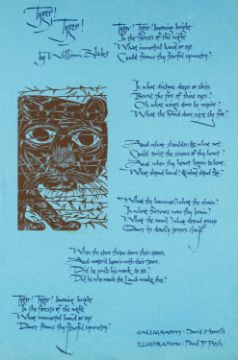 Tyger! Tyger!
by William Blake
Tyger! Tyger! burning bright
In the forests of the night
What immortal hand or eye
Could frame thy fearful symmetry?
In what distant deeps or skies
Burnt the fire of thine eyes?
On what wings dare he aspire?
What the hand dare seize the fire?
And what shoulder, & what art,
Could twist the sinews of thy heart?
And when thy heart began to beat,
What dread hand? & what dread feet?
What the hammer? what the chain?
In what furnace was thy brain?
What the anvil? what dread grasp
Dare its deadly terrors clasp?
When the stars threw down their spears,
And water'd heaven with their tears,
Did he smile his work to see?
Did he who made the Lamb make thee?
Tyger! Tyger! burning bright
In the forests of the night
What immortal hand or eye
Dare frame thy fearful symmetry?
CALLIGRAPHY: David
ILLUSTRATION: Paul P.